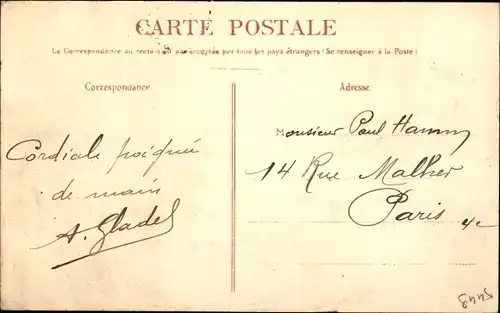 CARTE POSTALE
La Correspondance au recto n'est pas acceptée par tous les pays étrangers (Se renseigner à la Poste)
Correspondance
Adresse
Cordiale poignée
de main
A. Gladel
Monsieur Paul Hamm
14 Rue Malher
Paris
5448